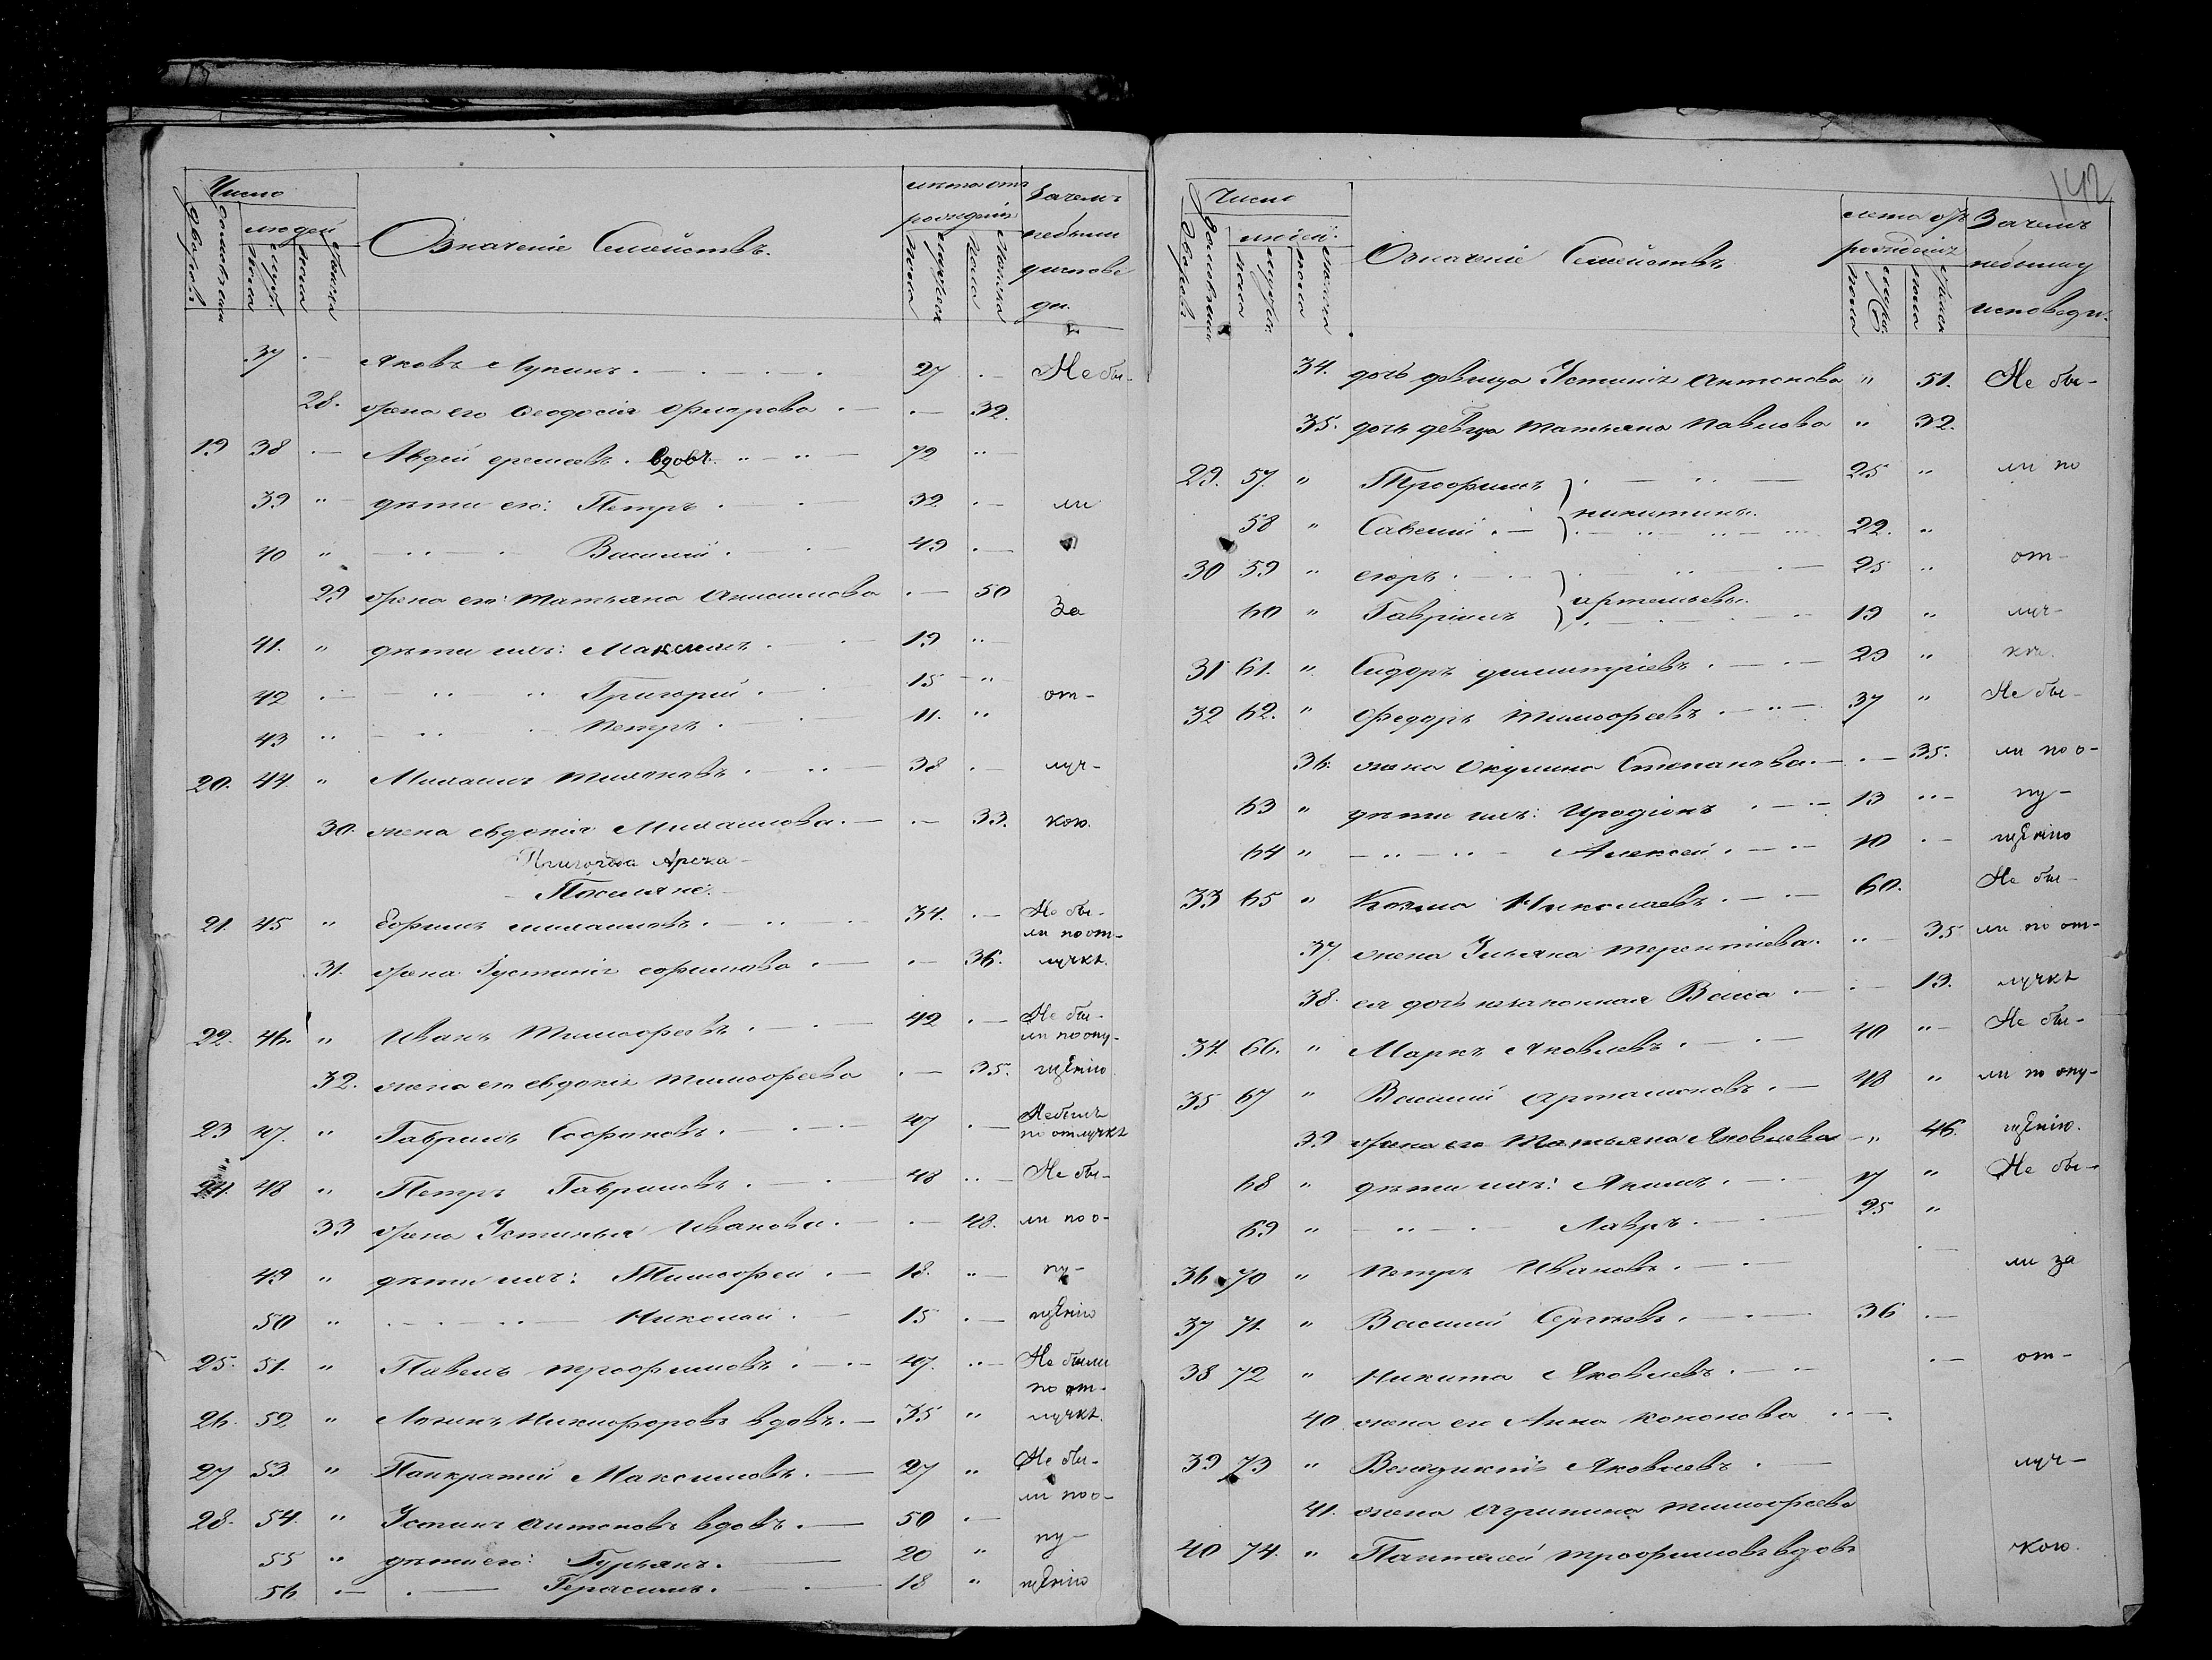 Число
людей
Означеніе Семействъ.
лѣта отъ рожденія
Зачемъ небыли уисповеди.
37 .— Яковъ Лукинъ 27 .— Не бы-
28. жена его Ѳеодосія Ѳ .— 32.
19 38 .— Авдей еремеевъ. вдовъ. 72 "—
39 "— дѣти его: Петръ 32 .— ли
40 " Василій 49 .—
29 жена его: Татьяна Анисимова .— 50 За
41. " дѣти ихъ: Максимъ 19 "—
42 .— Григорей 15 —"— от-
43 " Петръ 11. "
20. 44. " Михаилъ Тихоновъ 38 .— луч-
30. жена евдокія Михаилова .— 33. кою.
Поселяне.
21. 45 " Ефимъ михаиловъ 34. .— Не бы-
ли по от-
31. жена Іустинія ефимова .— 36. лучкѣ.
22. 46. " Иванъ Тимофеевъ 42 .— Не бы-
ли по опу-
32. жена его евдокія тимофеева .— 35. щенію
23 47. " Гаврилъ Софоновъ 47 .— Небылъ
по отлучкѣ
24. 48 " Петръ Гавриловъ 48 "— Не бы-
33 жена Устинья Иванова .— 48. ли по о-
49 " дѣти ихъ: Тимофей 18. "— пу-
50 " Николай 15 .— щенію
25. 51. " Павелъ трофимовъ 47. "— Не были
по от-
26. 52 " Логинъ Никифоровъ вдовъ. 35 " лучкѣ.
27 53. " Панкратій Максимовъ 27 " Не бы-
ли по о-
28. 54. " Устинъ антоновъ вдовъ. 50 .—
пу-
55 " дѣти его: Гурьянъ. 20 "
56 .— Герасимъ. 18 " щенію
142
Число
людей.
Означеніе Семействъ
лета отъ рожденія
Зачемъ небыли исповеди.
34. дочь девица Устинія антонова " 51. Не бы-
35. дочь девица татьяна павлова " 32.
29. 57. " Трофимъ 25 " ли по
никитины.
58 " Савелій 22. "
30 59 " егоръ 25 " от-
артемьевы.
60 " Гавріилъ 19 " луч-
31 61. " Сидоръ димитріевъ 29 " кѣ.
32 62. " Федоръ тимофеевъ 37 " Не бы-
36. жена Окулина Степанова .— 35. ли по о-
63 " дѣти ихъ: Иродіонъ 13 "— пу-
64 " Алексей 10 .— щенію
33 65 " Козма Николаевъ 60. Не бы-
37. жена Ульяна терентіева "— 35 ли по от-
38. ея дочь незаконная Васса .— 13. лучкѣ
34. 66. " Маркъ Яковлевъ 40 "— Не бы-
35 67 " Василій артамоновъ 48 " ли по опу-
39 жена его татьяна Яковлева —" 46. щенію.
68 " дѣти ихъ: Акимъ 17 " Не бы-
69 " Лавръ 25 "
36 70 " Петръ Ивановъ .— ли за
37 71. " Василій Сергеевъ 36 .—
38 72 " Никита Яковлевъ .— от-
40 жена его Анна кононова
39 73 " Венедиктъ Яковлевъ луч-
41. жена агрипина тимофеева
40 74. " Пантелей трофимовъ вдовъ кою.